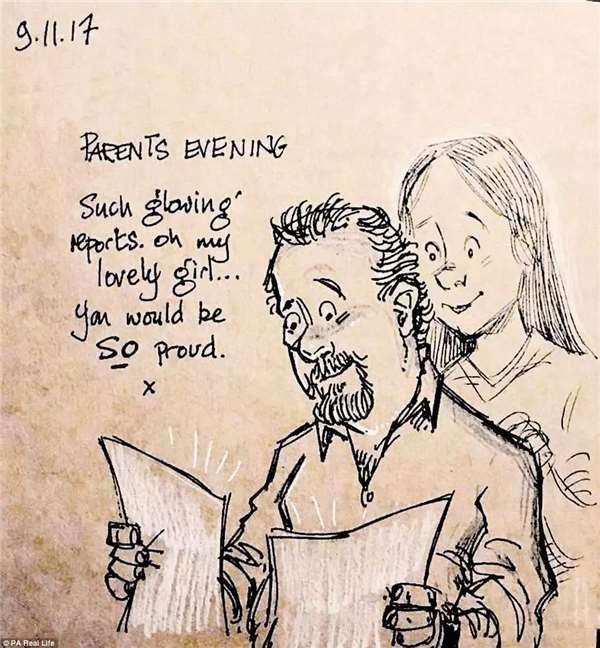 9.11.17
PARENTS EVENING
Such glowing
reports. oh my
lovely girl...
You would be
SO proud.
x
© PA Real Life